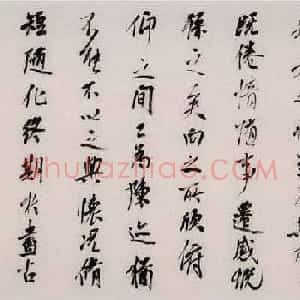 既倦情隨事遷感慨
係之矣向之所欣俯
仰之間已為陳迹猶
不能不以之興懷況脩
短隨化終期於盡古
shufaziliao.com